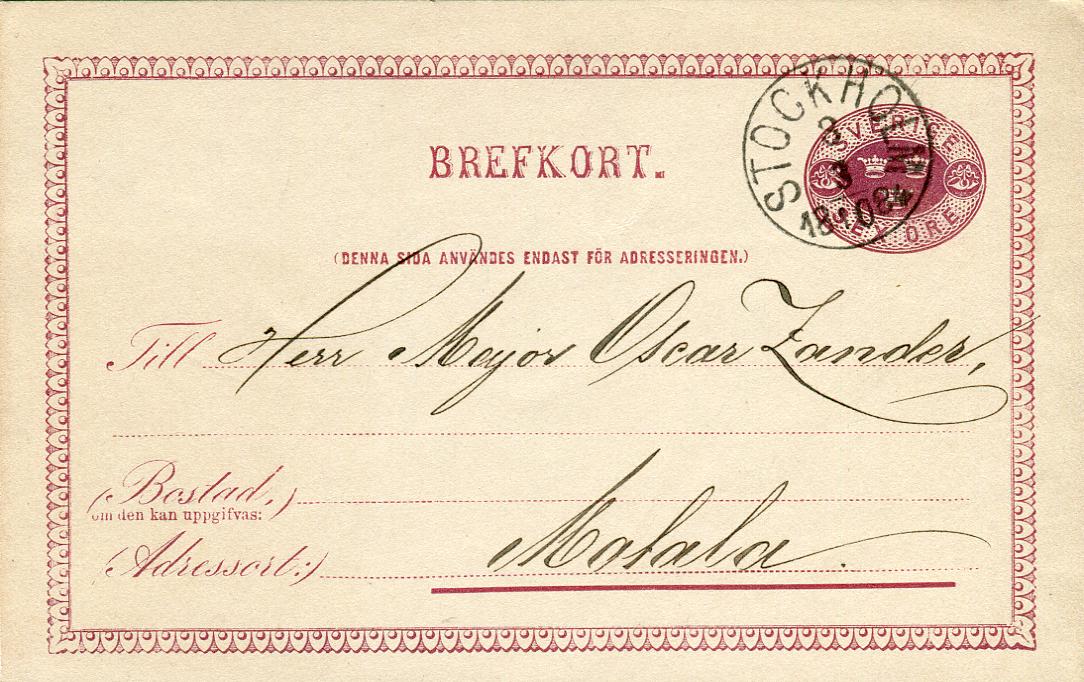 BREFKORT.
STOCKHOLM
3
3
1884
SVERIGE
SEX ÖRE
(DENNA SIDA ANVÄNDES ENDAST FÖR ADRESSERINGEN.)
Till Herr Major Oscar Zander,
(Bostad,)
om den kan uppgifvas:
(Adressort:) Motala.